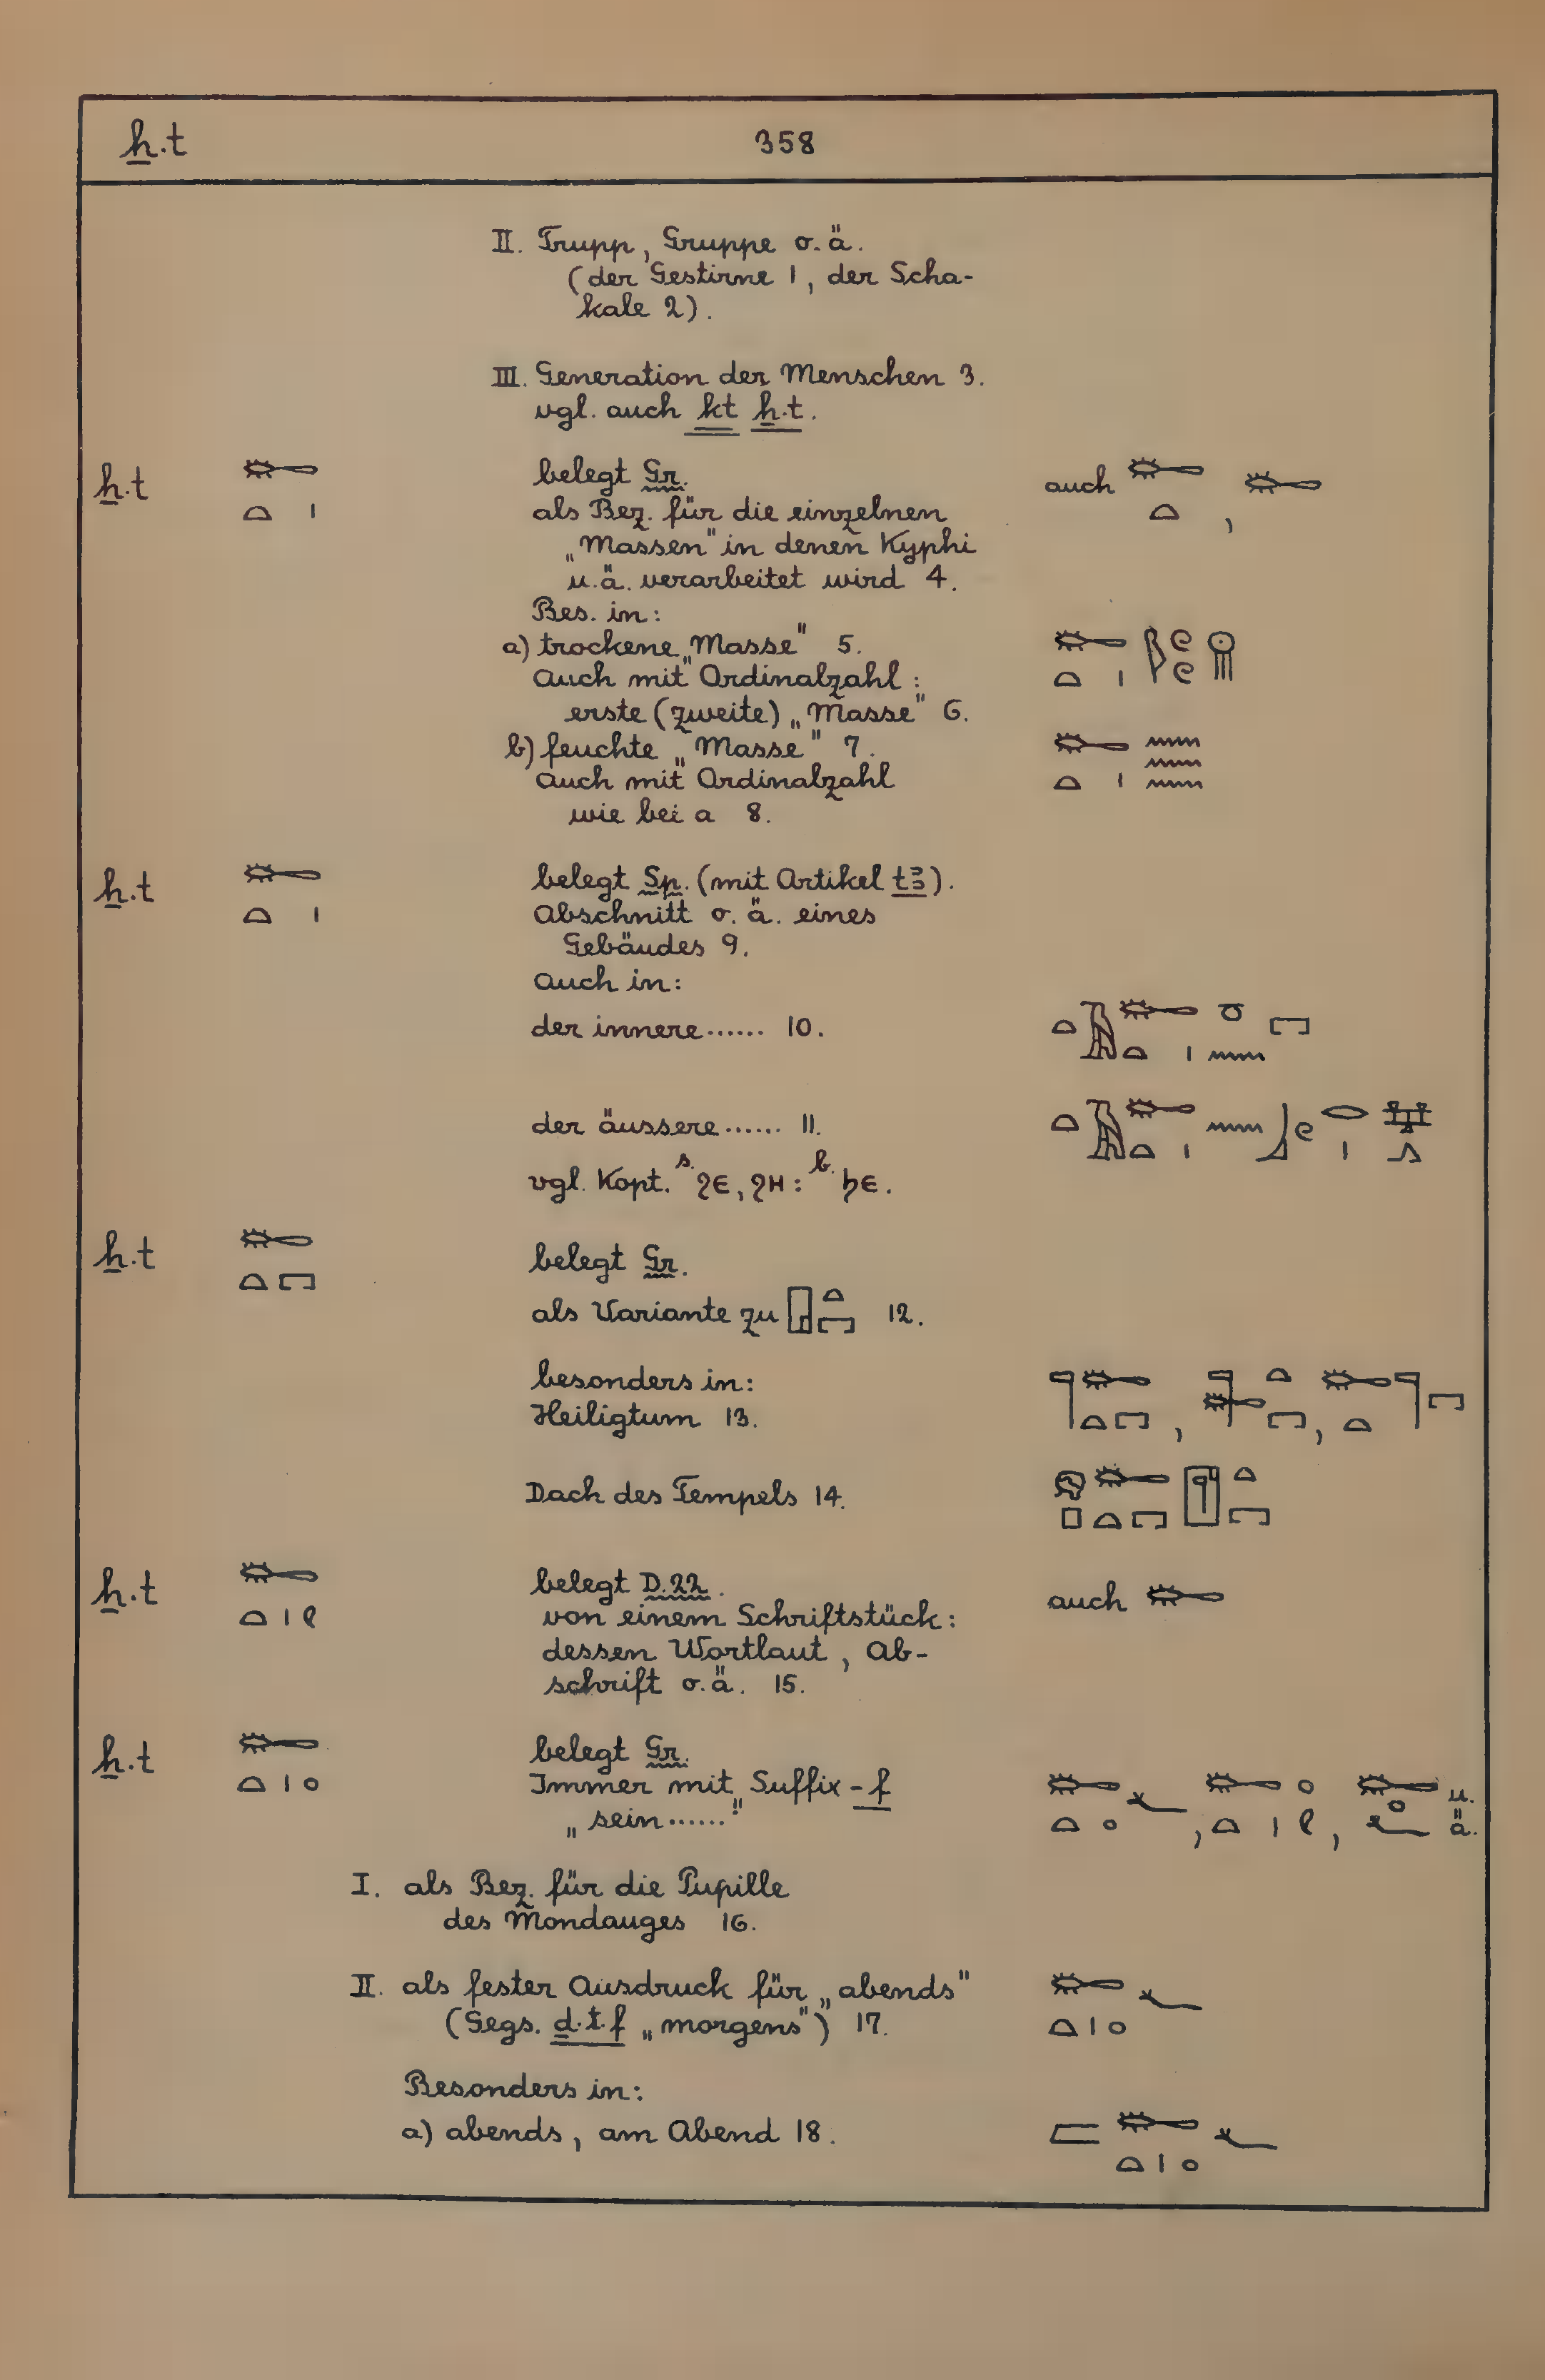 ẖ.t 358
II. Trupp, Gruppe o. ä.
(der Gestirne 1, der Scha-
kale 2).
III. Generation der Menschen 3.
vgl. auch kt ẖ.t.
ẖ.t 𓄡𓏏𓏤 belegt Gr. auch 𓄡𓏏, 𓄡
als Bez. für die einzelnen
„Massen" in denen Kyphi
u.ä. verarbeitet wird 4.
Bes. in:
a) trockene „Masse" 5.
auch mit Ordinalzahl:
erste (zweite) „Masse" 6.
b) feuchte „Masse" 7. 𓄡𓏏𓏤𓈗
auch mit Ordinalzahl
wie bei a 8.
ẖ.t 𓄡𓏏𓏤 belegt Sp. (mit Artikel tꜣ).
Abschnitt o. ä. eines
Gebäudes 9.
auch in:
der innere...... 10.
der äussere...... 11.
vgl. Kopt. s. ϩⲉ, ϩⲏ: b. ϧⲉ.
ẖ.t 𓄡𓏏𓉐 belegt Gr.
als Variante zu 𓉗𓏏𓉐 12.
besonders in:
Heiligtum 13. 𓊹𓄡𓏏𓉐, 𓊹𓄡𓏏𓉐, 𓄡𓏏𓊹𓉐
Dach des Tempels 14. 𓁶𓊪𓄡𓏏𓉐𓉗𓊹𓏏𓉐
ẖ.t 𓄡𓏏𓏤𓏲 belegt D.22. auch 𓄡
von einem Schriftstück:
dessen Wortlaut, Ab-
schrift o.ä. 15.
ẖ.t 𓄡𓏏𓏤𓈒 belegt Gr.
Immer mit Suffix -f 𓄡𓏏𓈒𓆑, 𓄡𓏏𓈒𓏤𓏲, 𓄡𓈒𓆑 u. ä.
„sein......"
I. als Bez. für die Pupille
des Mondauges 16.
II. als fester Ausdruck für „abends" 𓄡𓏏𓏤𓈒𓆑
(Gegs. ḏ.t.f „morgens") 17.
Besonders in:
a) abends, am Abend 18. 𓐝𓄡𓏏𓏤𓈒𓆑